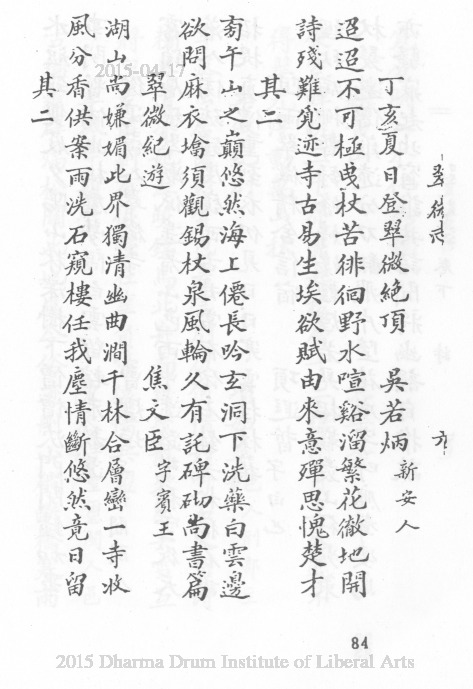 丁亥夏日登翠微絶頂 吳若炳 新安人
迢迢不可極曳杖苦徘徊野水喧谿溜繁花徹地開
詩殘難覓迹寺古易生埃欲賦由來意殫思愧楚才
其二
亭午山之巔悠然海上僊長吟玄洞下洗藥白雲邊
欲問麻衣墖須觀錫杖泉風輪久有託碑砌尚書篇
翠微紀遊 焦文臣 字賓王
湖山尚嫌媚此界獨清幽曲澗千林合層巒一寺收
風分香供案雨洗石窺樓任我塵情斷悠然竟日留
其二
84
2015-04-17
2015 Dharma Drum Institute of Liberal Arts